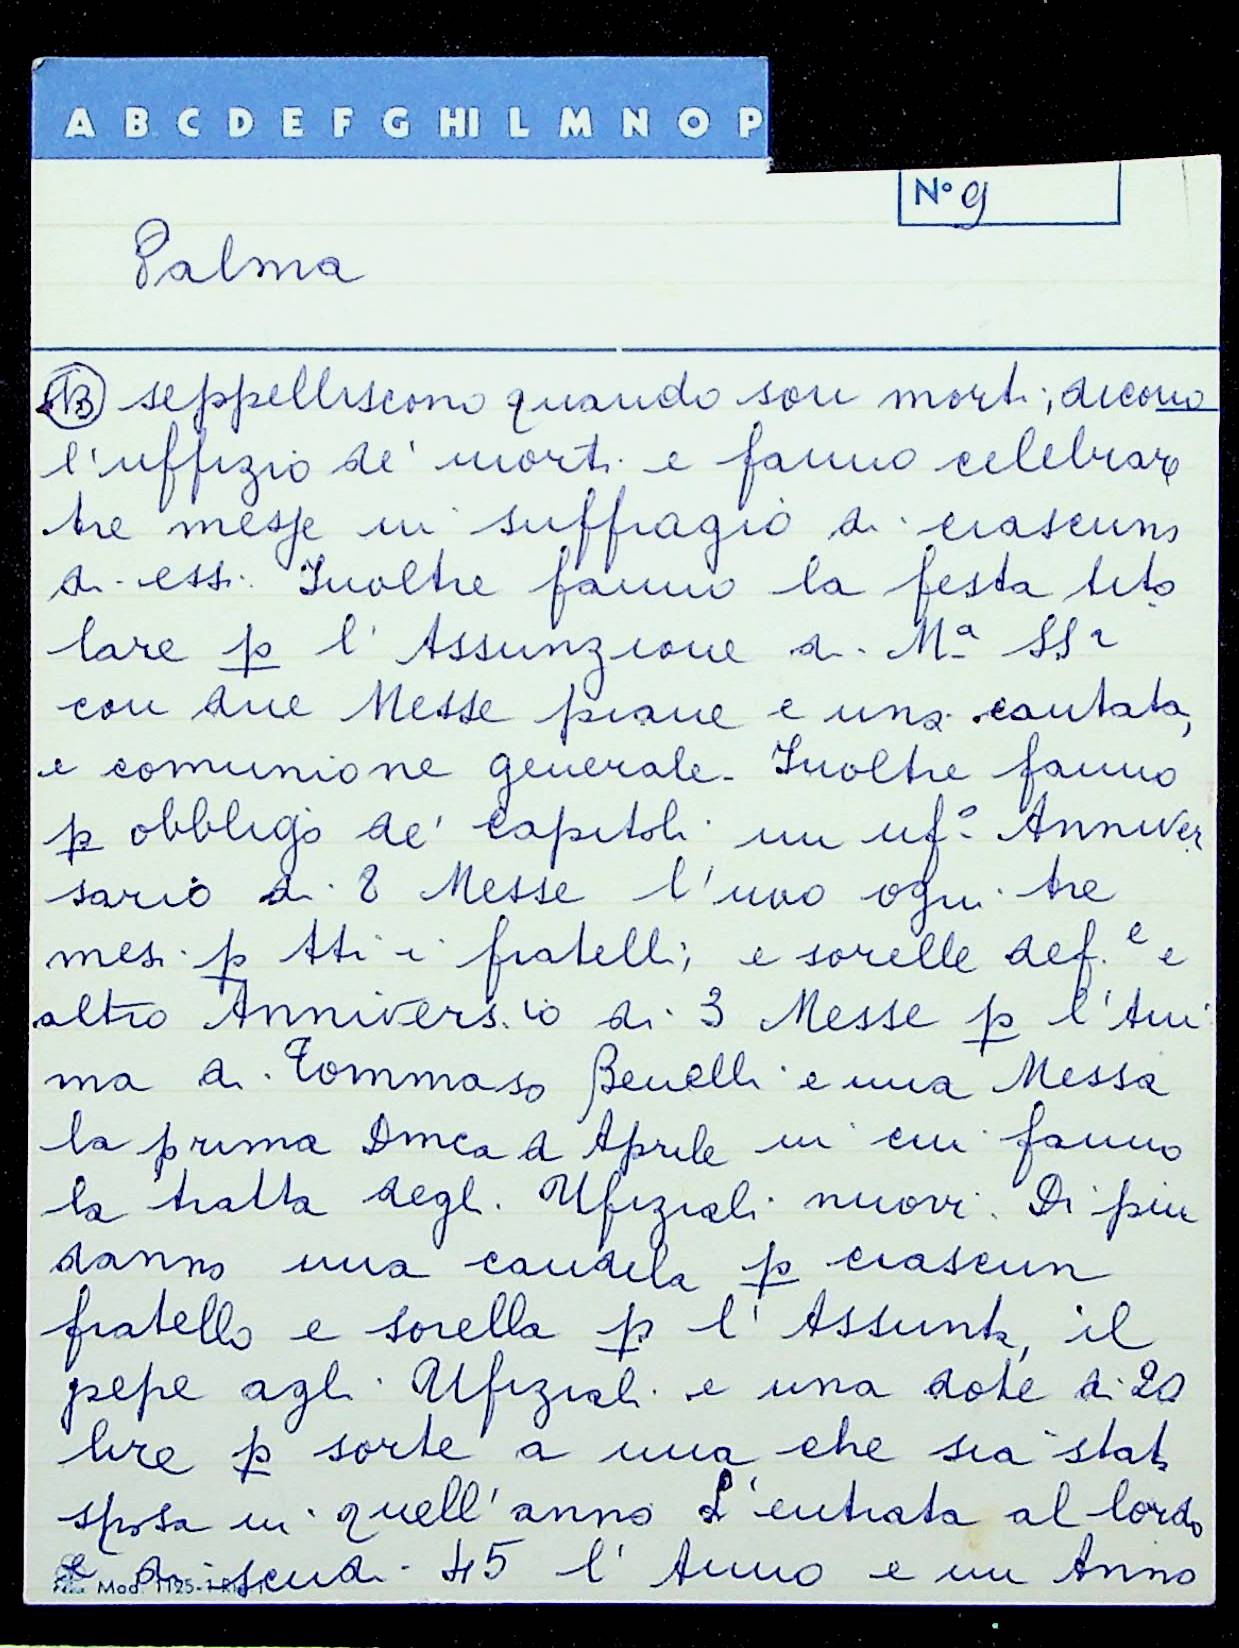 A B C D E F G HI L M N O P
Nº 9
Palma
B seppelliscono quando son morti; dicono
l'uffizio de' morti e fanno celebrare
tre messe in suffragio di ciascuno
di essi. Inoltre fanno la festa tito
lare p l'Assunzione di Mª SSª
con due Messe piane e una cantata,
e comunione generale. Inoltre fanno
p obbligo de' Capitoli un ufº Anniver
sario di 8 Messe l'uno ogni tre
mesi p tti i fratelli; e sorelle def.e e
altro Annivers.io di 3 Messe p l'Ani
ma di Tommaso Benelli e una Messa
la prima Dmca d Aprile in cui fanno
la tratta degli Ufiziali nuovi. Di piu
danno una candela p ciascun
fratello e sorella p l'Assunta, il
pepe agli Ufiziali e una dote di 20
lire p sorte a una che sia stata
sposa in quell'anno L'entrata al lordo
è di scudi 45 l'Anno e un Anno
Mod. 1125-1